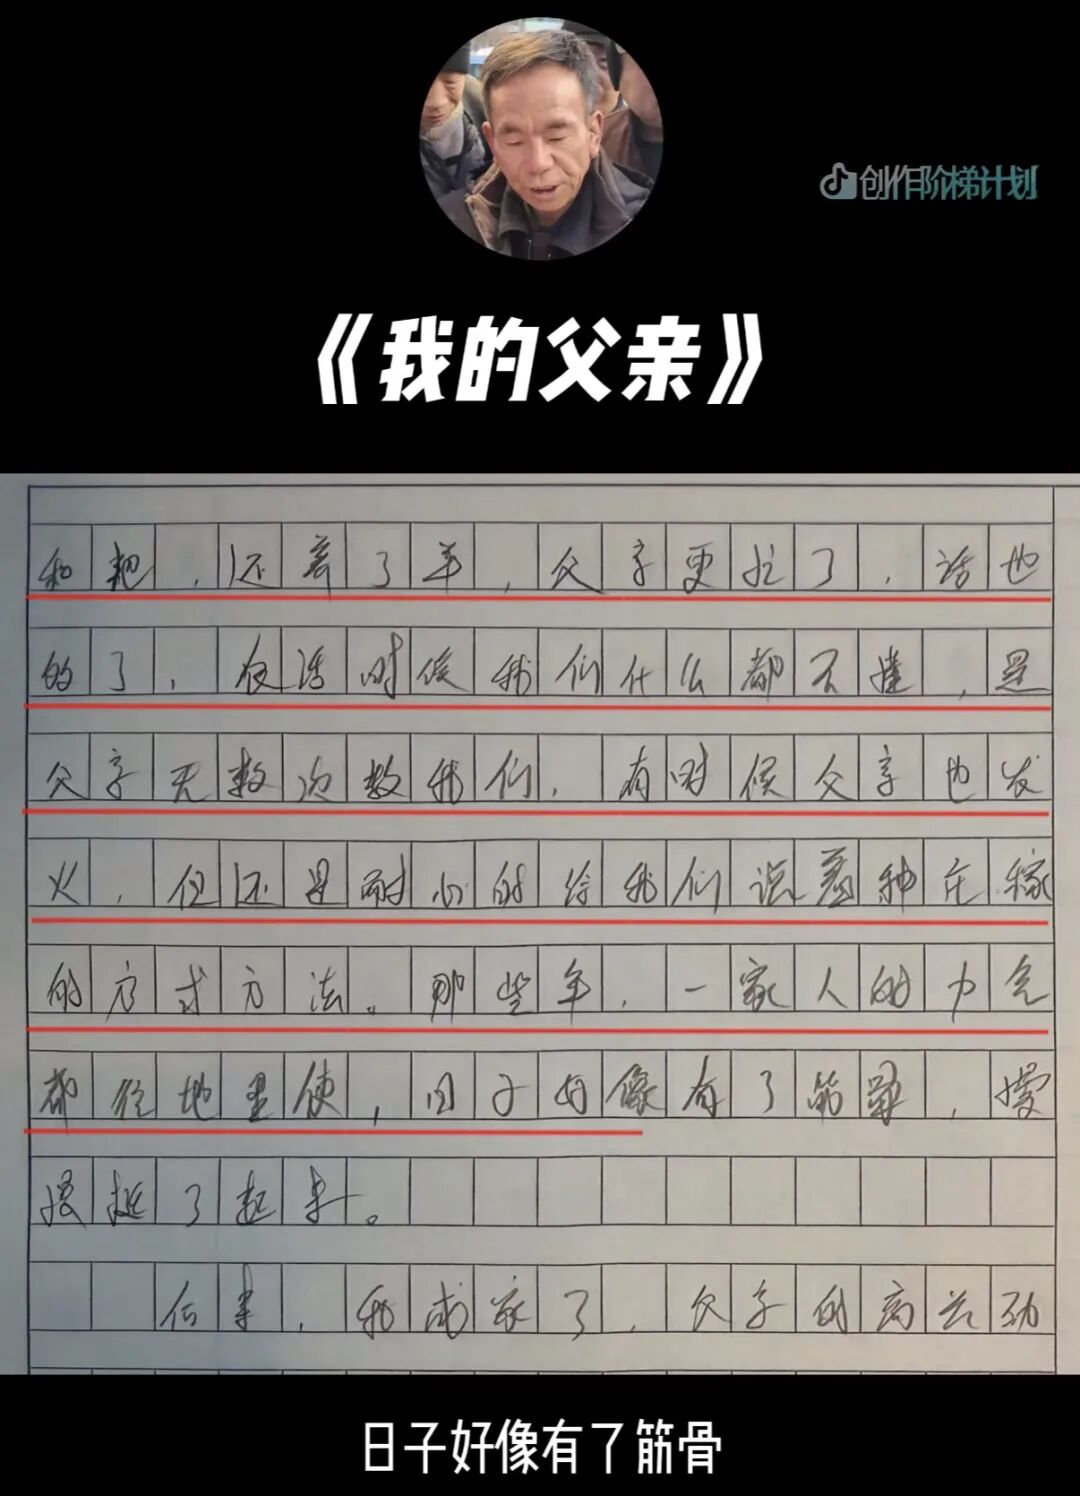 创作阶梯计划
《我的父亲》
和耙,还养了羊,父亲更忙了,话也
的了,夜活时候我们什么都不懂,是
父亲无数次教我们,有时候父亲也发
火,但还是耐心的给我们说着种庄稼
的方式方法。那些年,一家人的力气
都往地里使,日子好像有了筋骨,慢
慢挺了起来。
后来,我成家了,父亲的高兴劲
日子好像有了筋骨